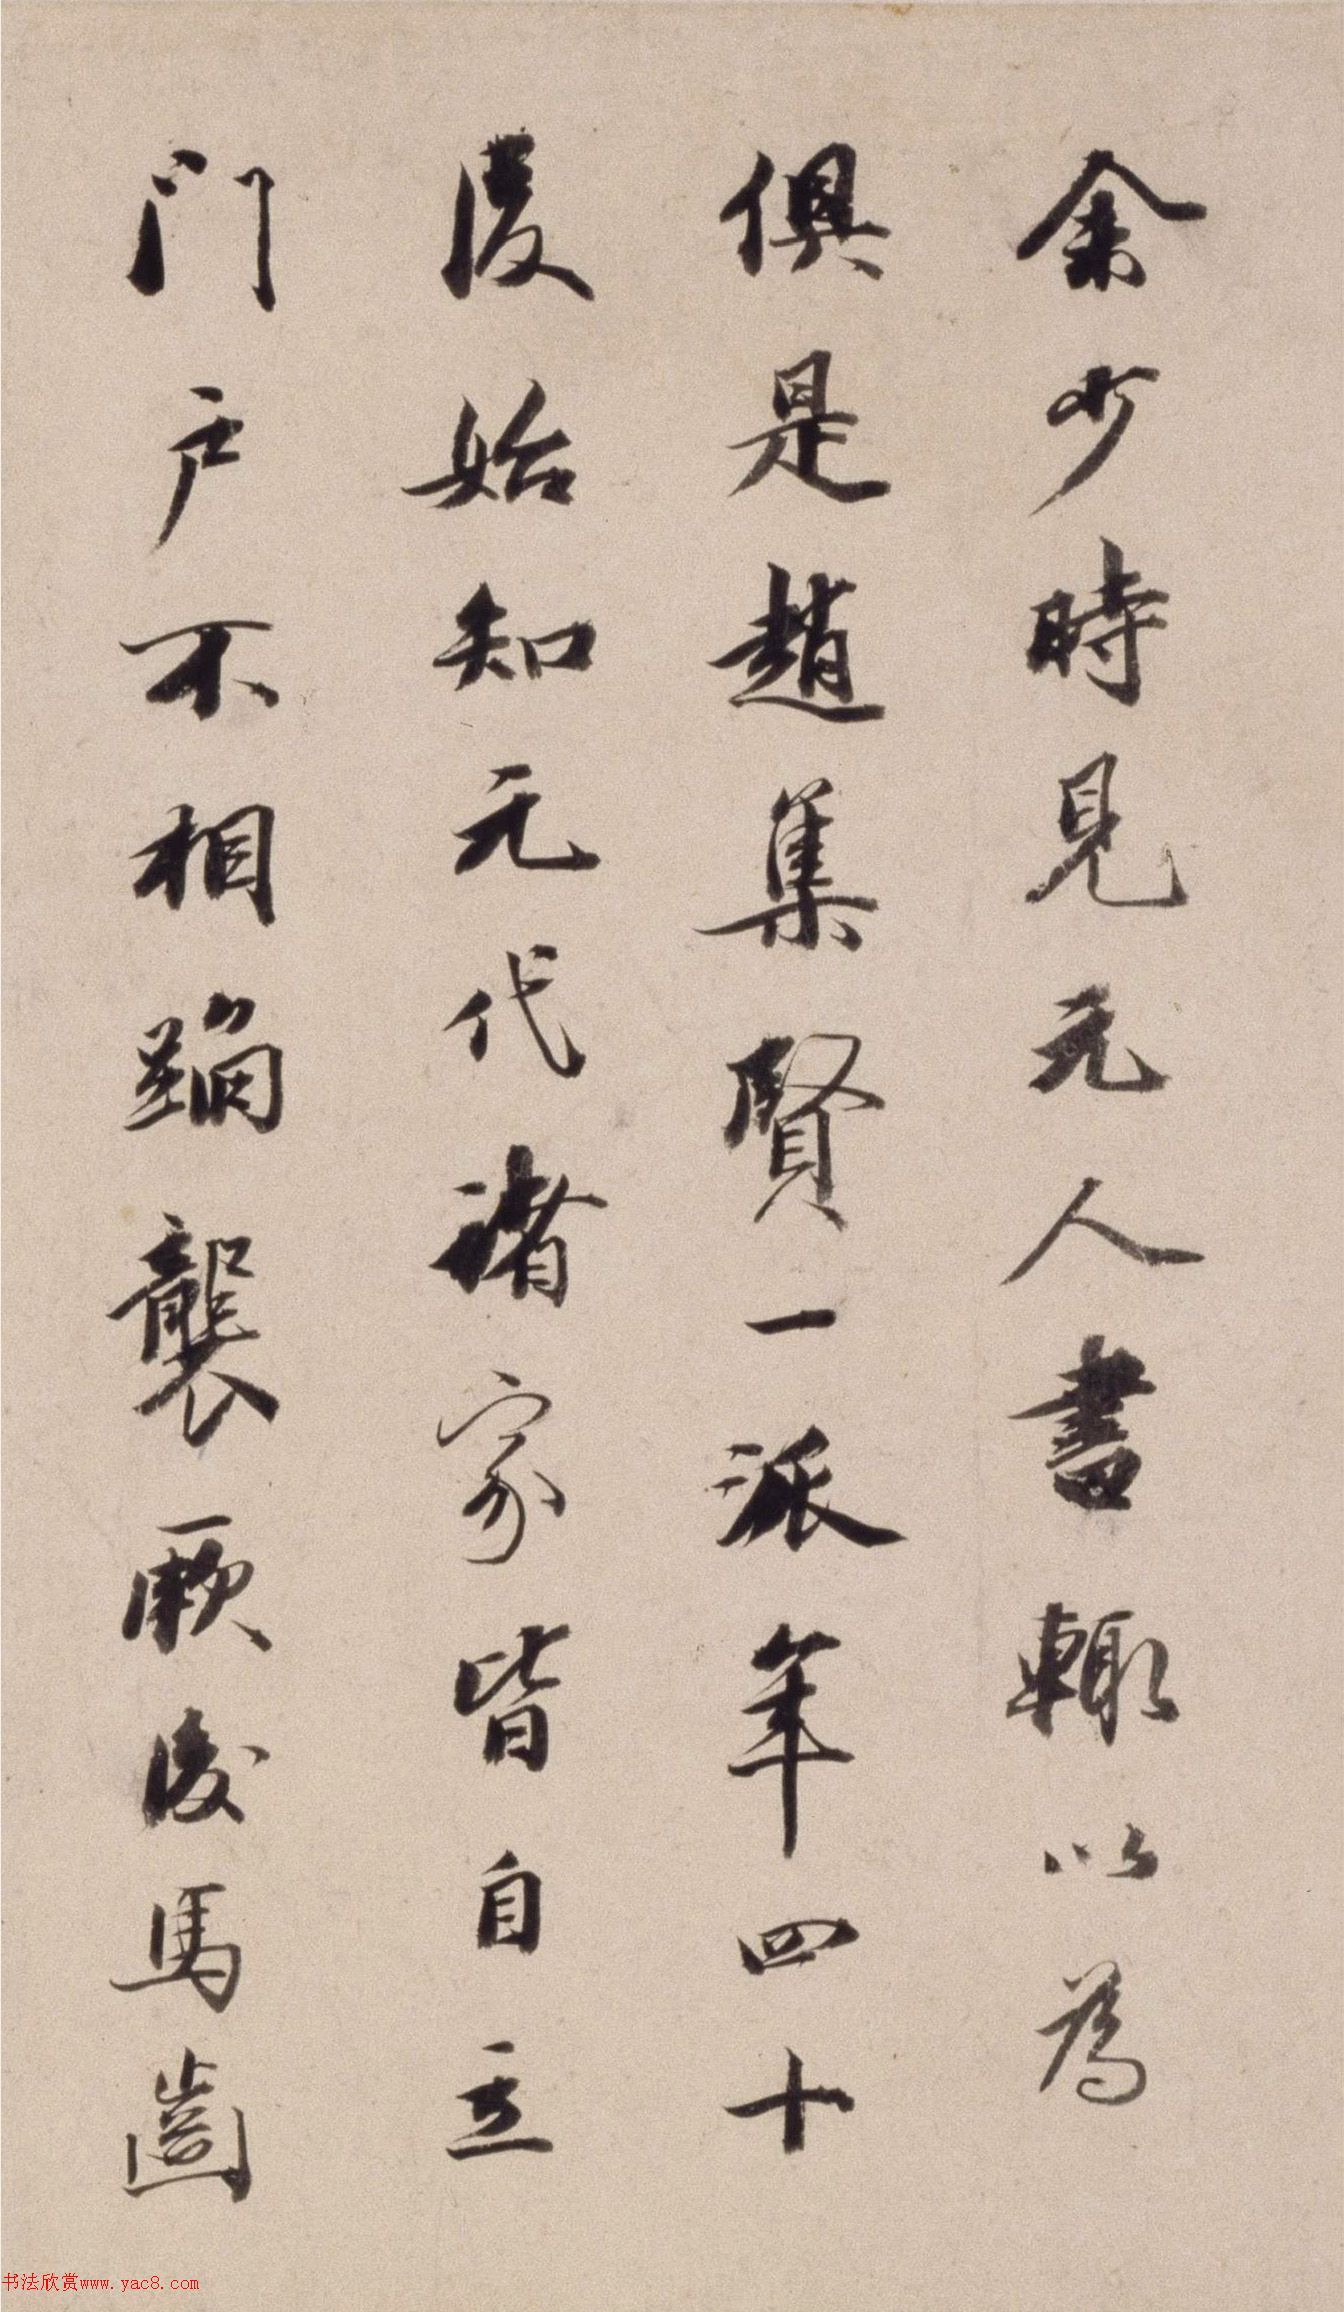 余少時見元人書輙以為
俱是趙集賢一派年四十
後始知元代諸家皆自立
門戶不相蹈襲厥後馬齒
书法欣赏www.yac8.com